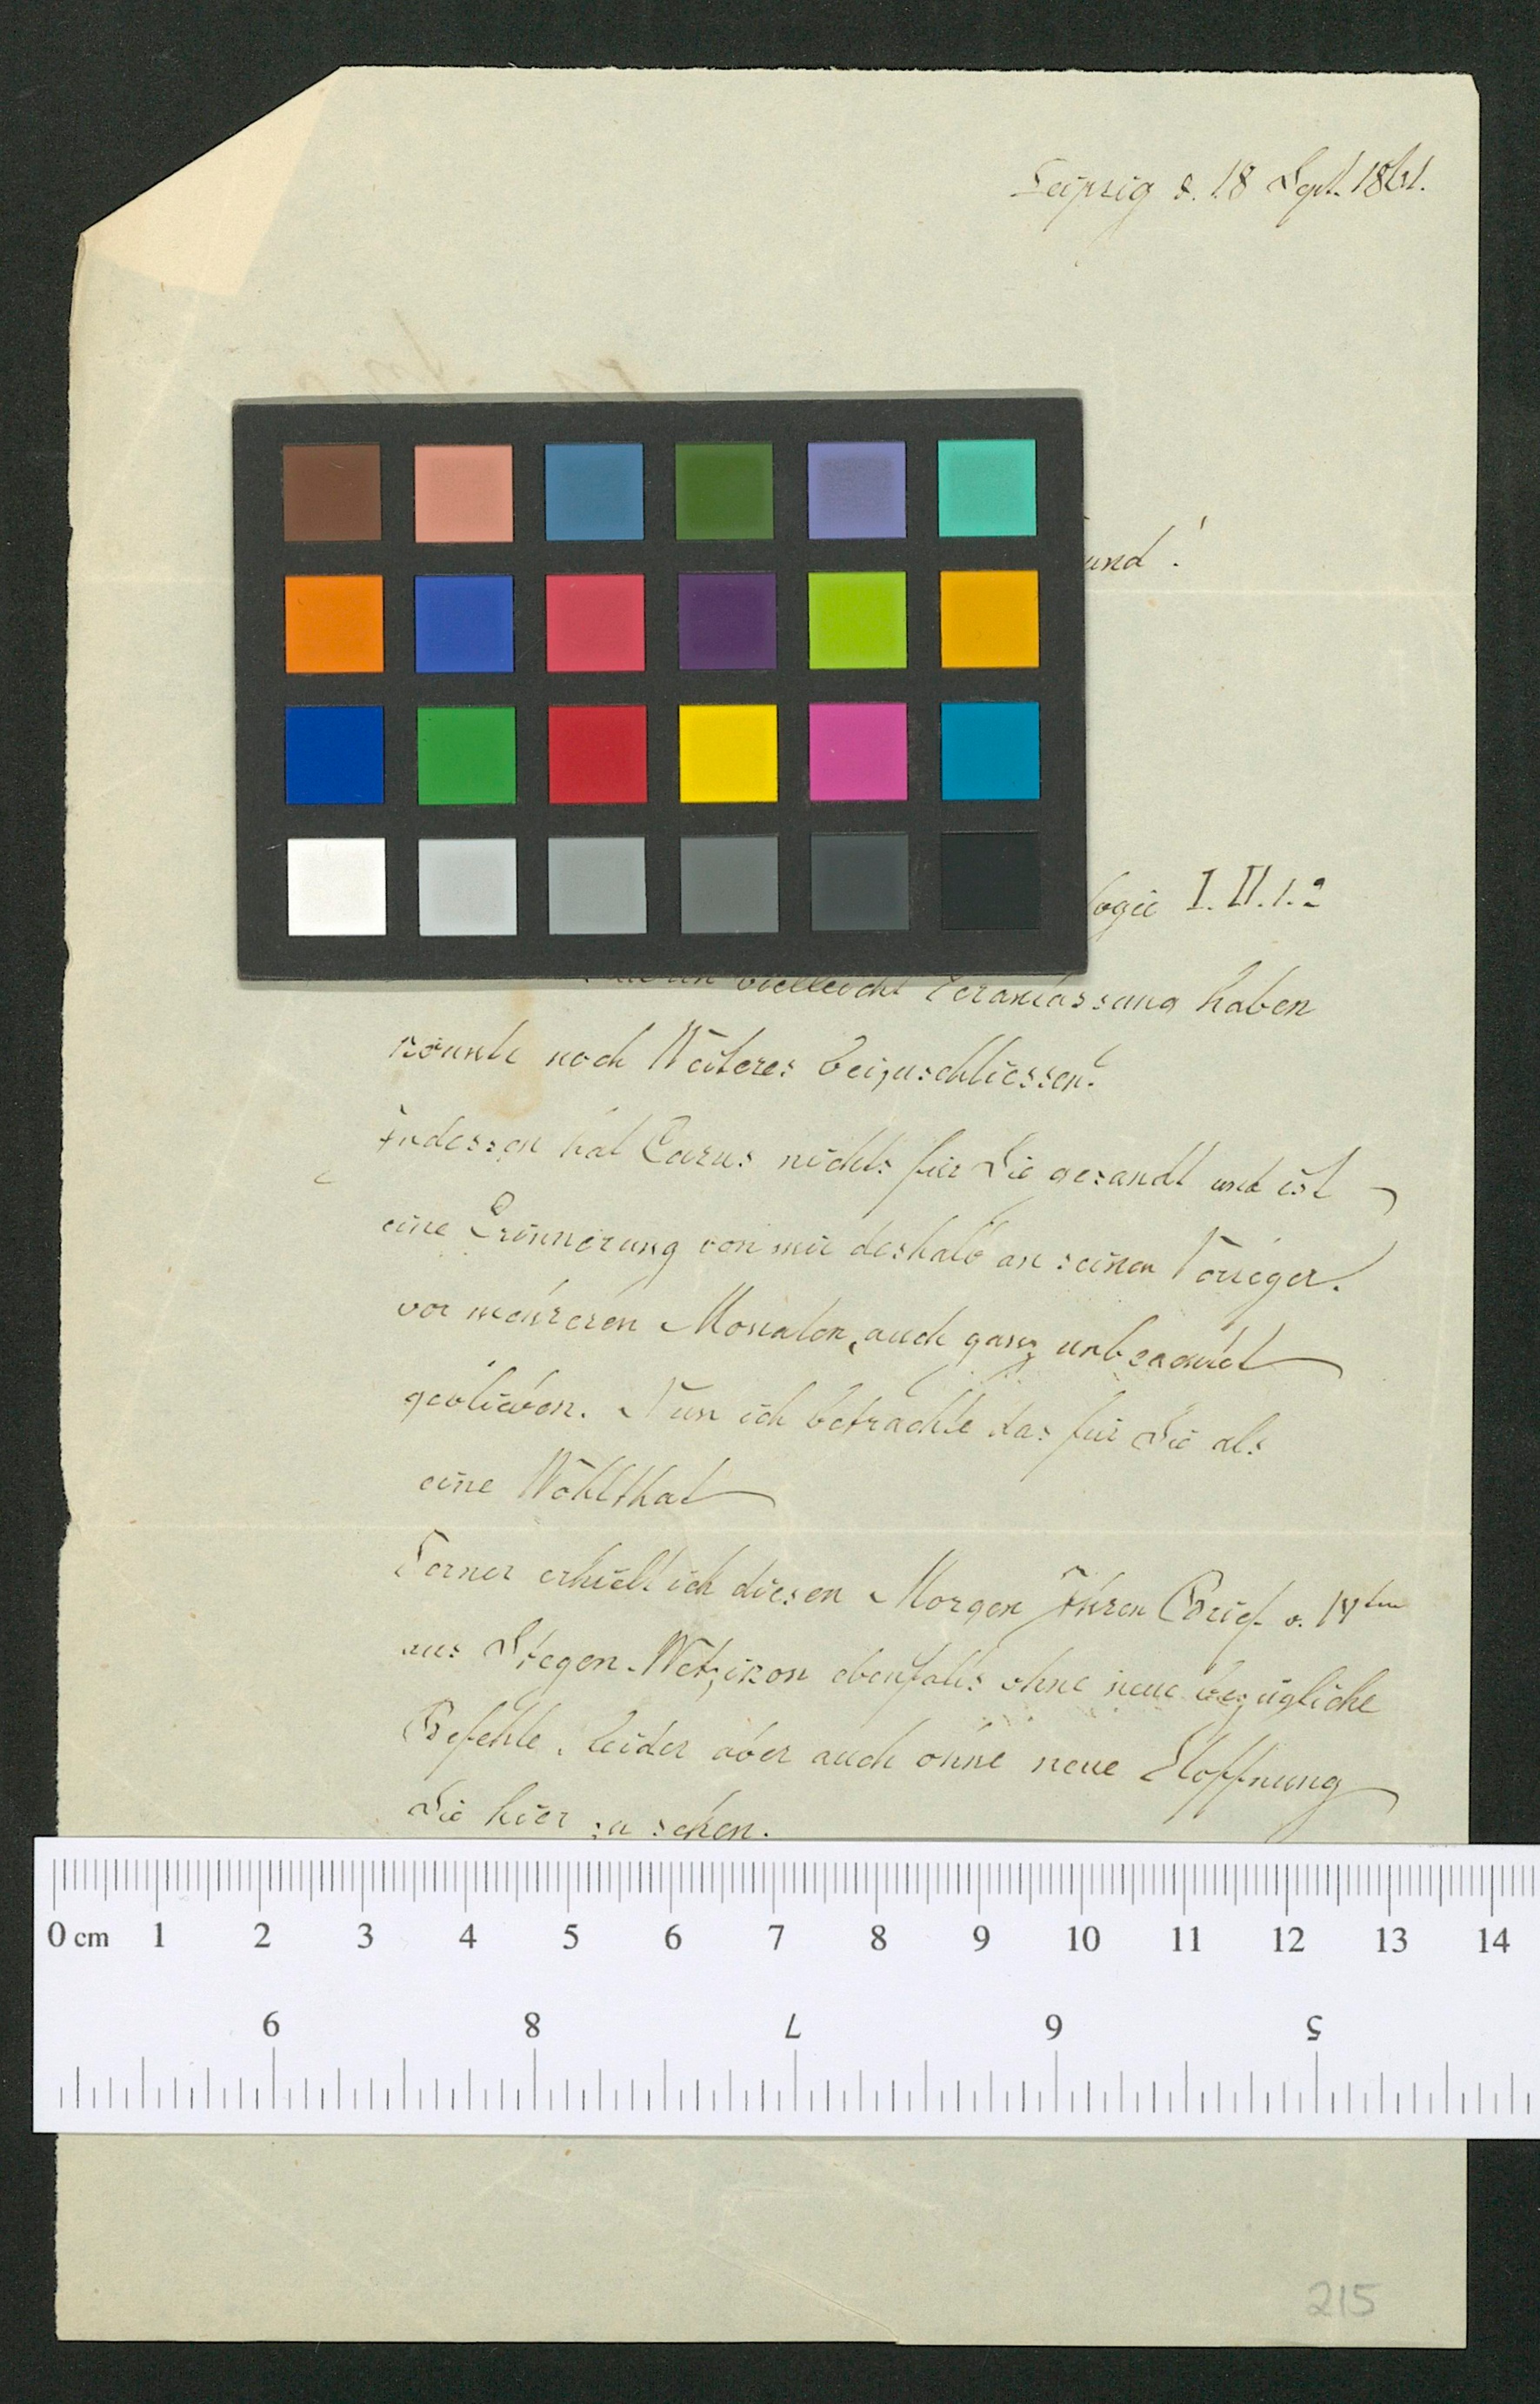 Leipzig d. 18 Sept. 1861.
und!
logie I. II. 1. 2
vielleicht Veranlassung haben
könnte noch Weiteres beizuschliessen?
Indessen hat Carus nichts für Sie gesandt und ist
eine Erinnerung von mir deshalb an seinen Verleger.
vor mehreren Monaten, auch ganz unbeachtet
geblieben. Nun ich betrachte das für Sie als
eine Wohlthat
Ferner erhielt ich diesen Morgen Ihren Brief v. 14ten
aus Stegen-Wetzikon ebenfalls ohne neue bezügliche
Befehle, leider aber auch ohne neue Hoffnung
Sie hier zu sehen.
0 cm 1 2 3 4 5 6 7 8 9 10 11 12 13 14
9 8 7 6 5
215